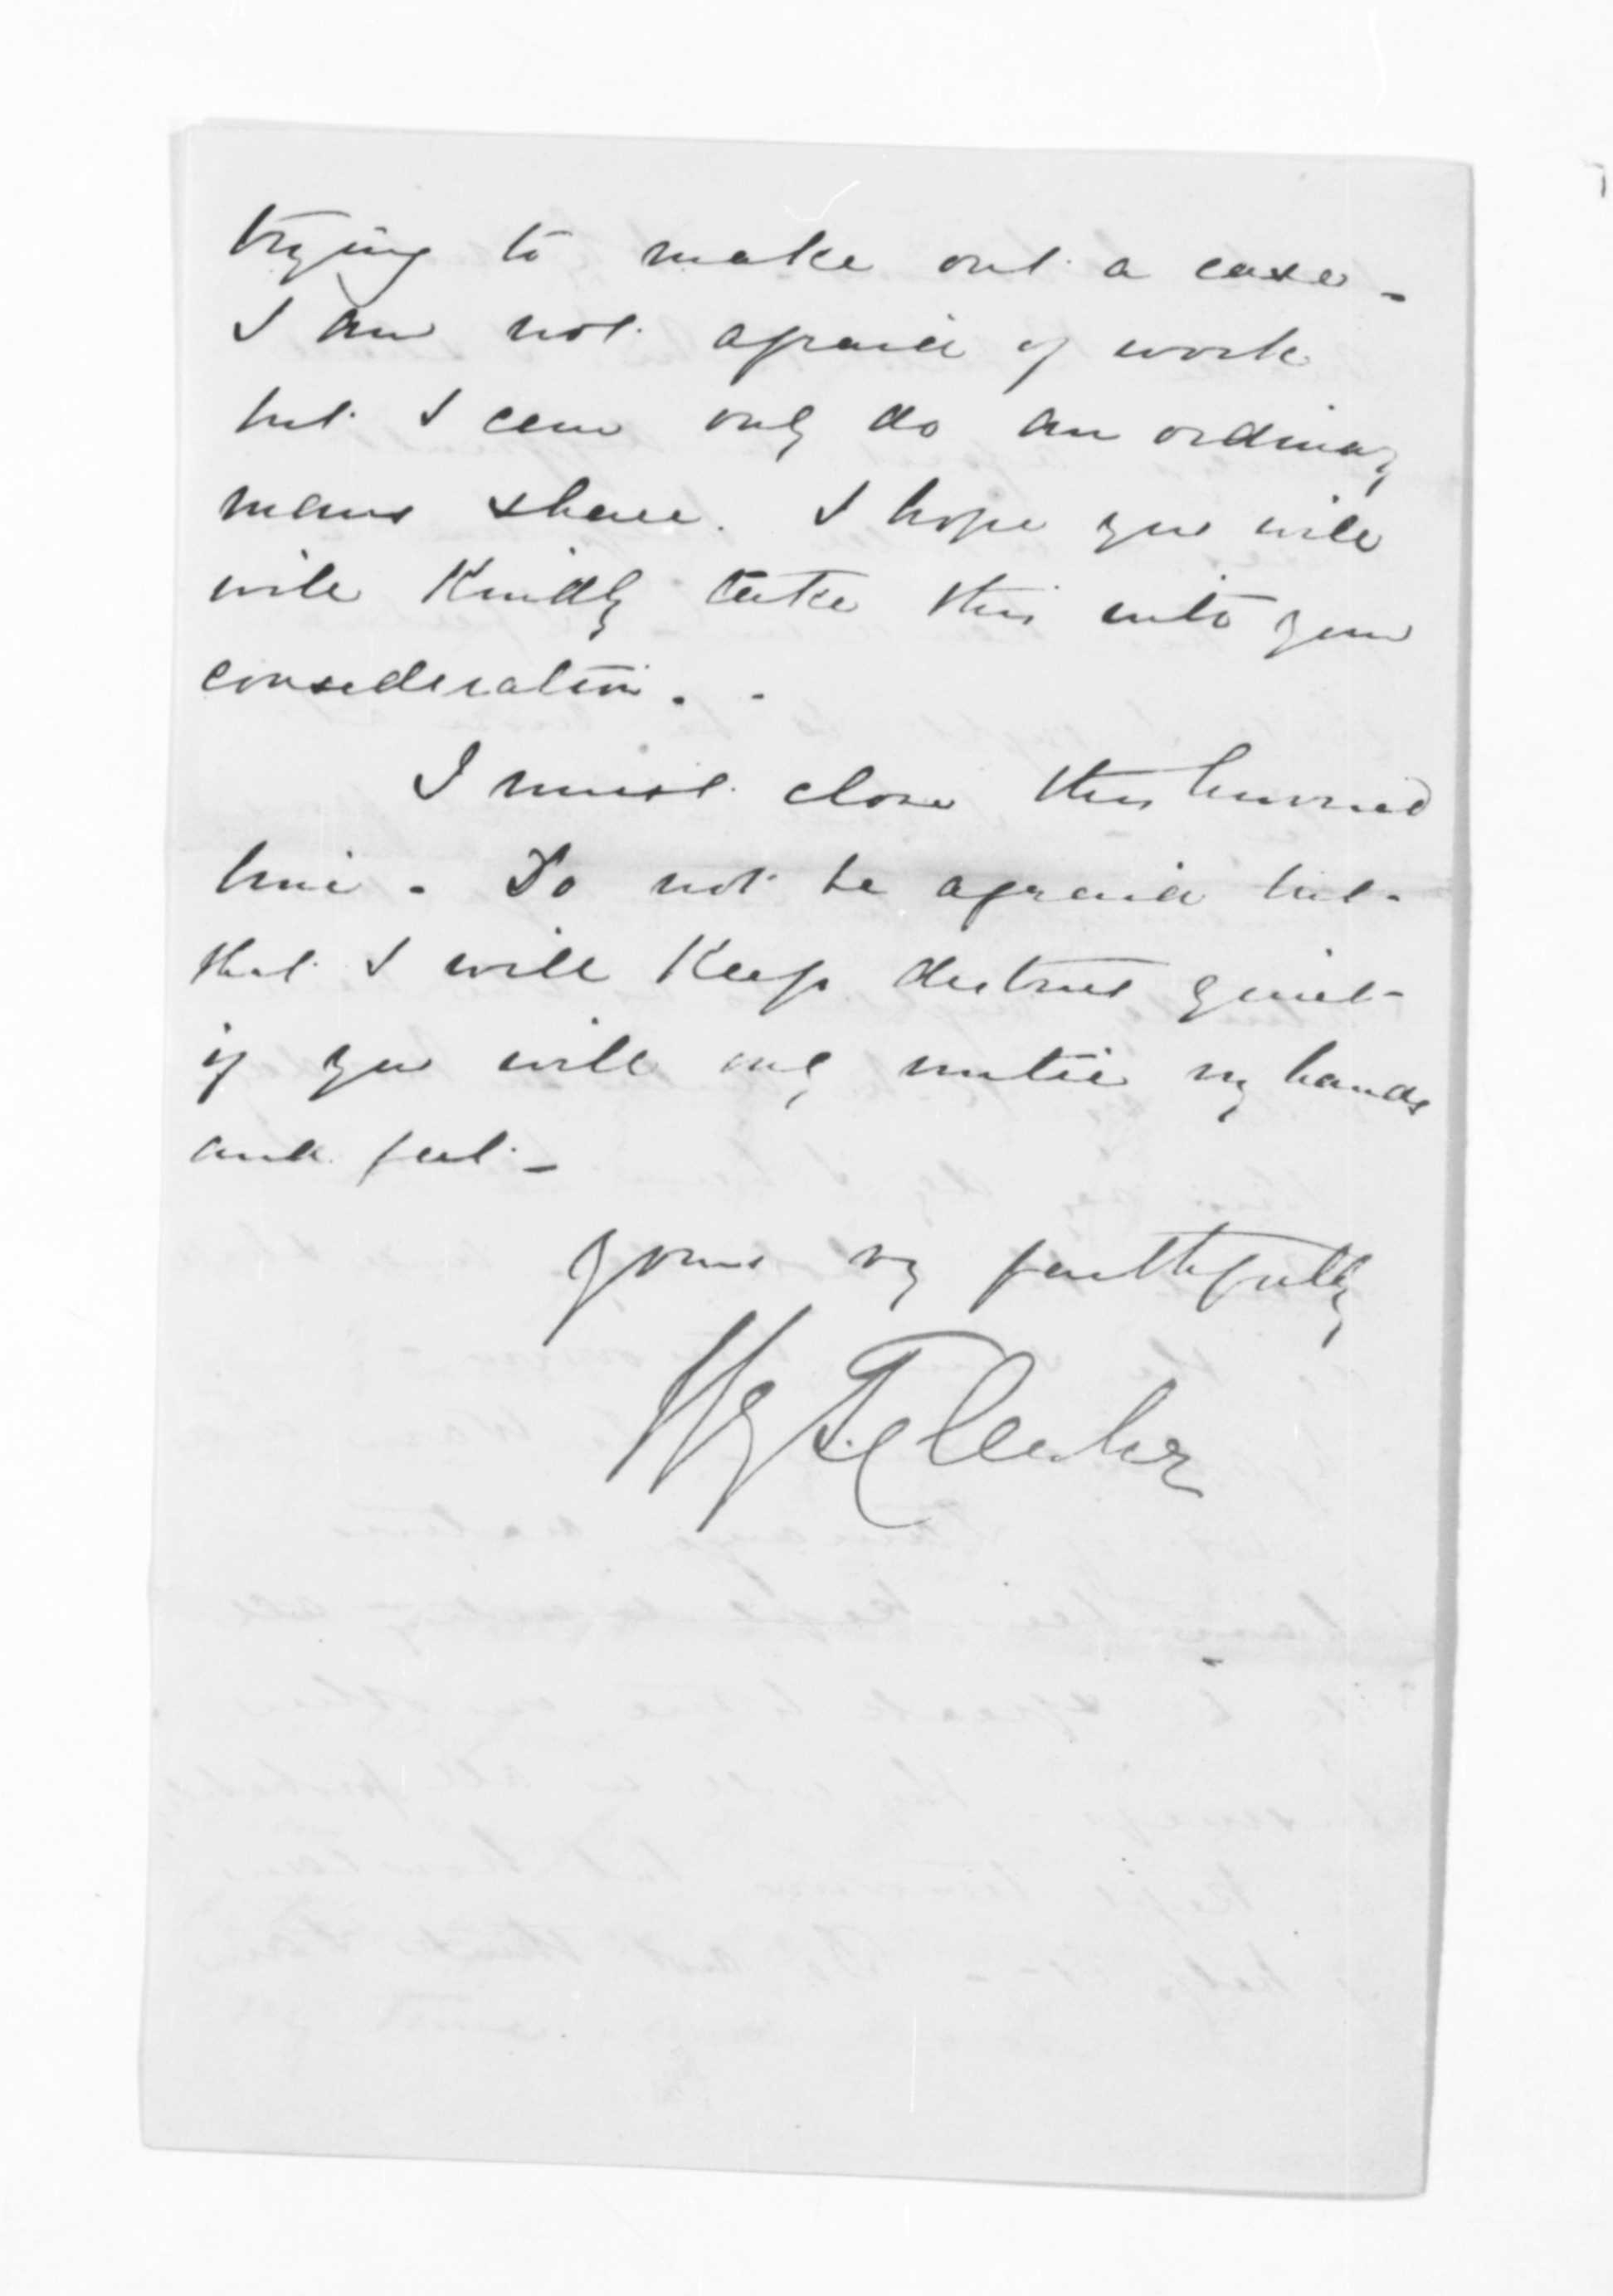 trying to make out a case -
I am not afraid of work
but I can only do an ordinary
mans share. I hope you will
will kindly take this into your
consideration. -
I must close this hurried
line - Do not be afraid but
that I will keep district quiet
if you will only untie my hands
and feet -
Yours vy faithfully